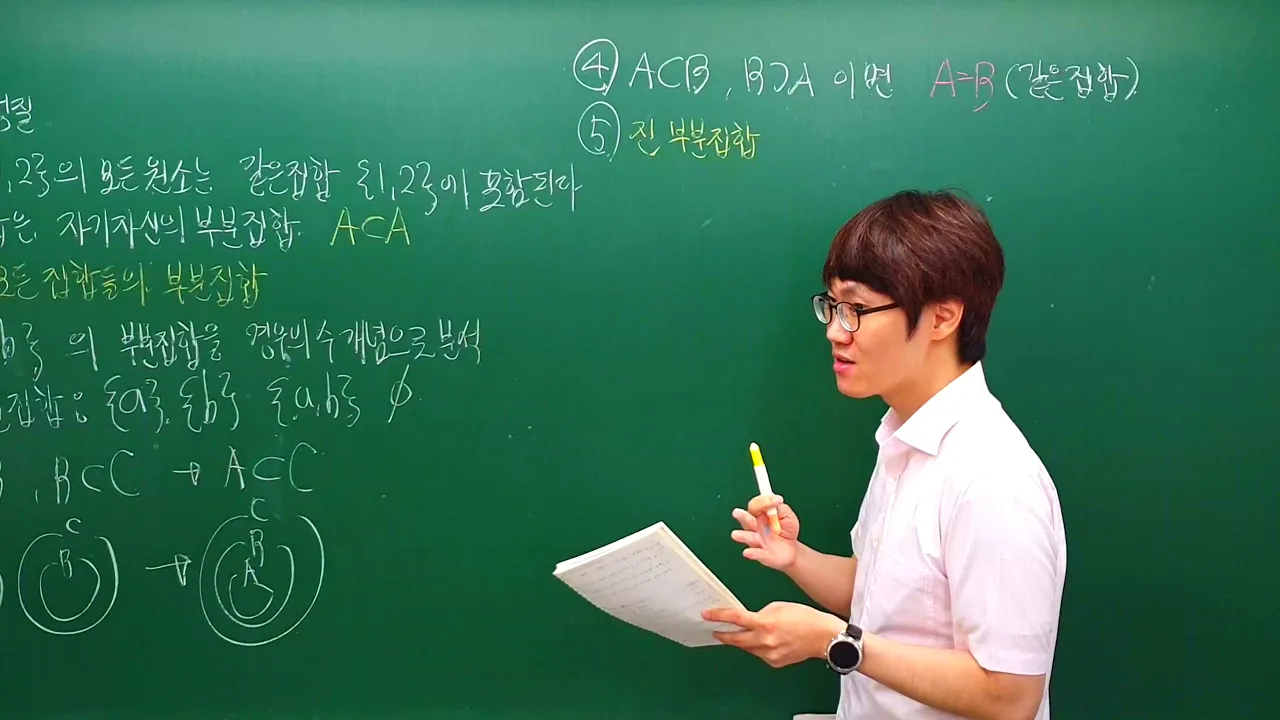 성질
1,2}의 모든원소는 같은집합 {1,2}에 포함된다
은 자기자신의 부분집합 A⊂A
모든 집합들의 부분집합
b}의 부분집합을 경우의수 개념으로 분석
집합은 {a}, {b} {a,b} ∅
, B⊂C → A⊂C
C
B
→
C
B
A
④ A⊂B, B⊃A 이면 A=B (같은집합)
⑤ 진 부분집합